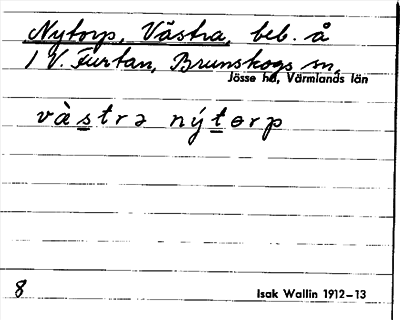 Nytorp, Västra, beb. å
1 V. Furtan, Brunskogs sn,
Jösse hd, Värmlands län
vàstra nýtorp
8
Isak Wallin 1912-13